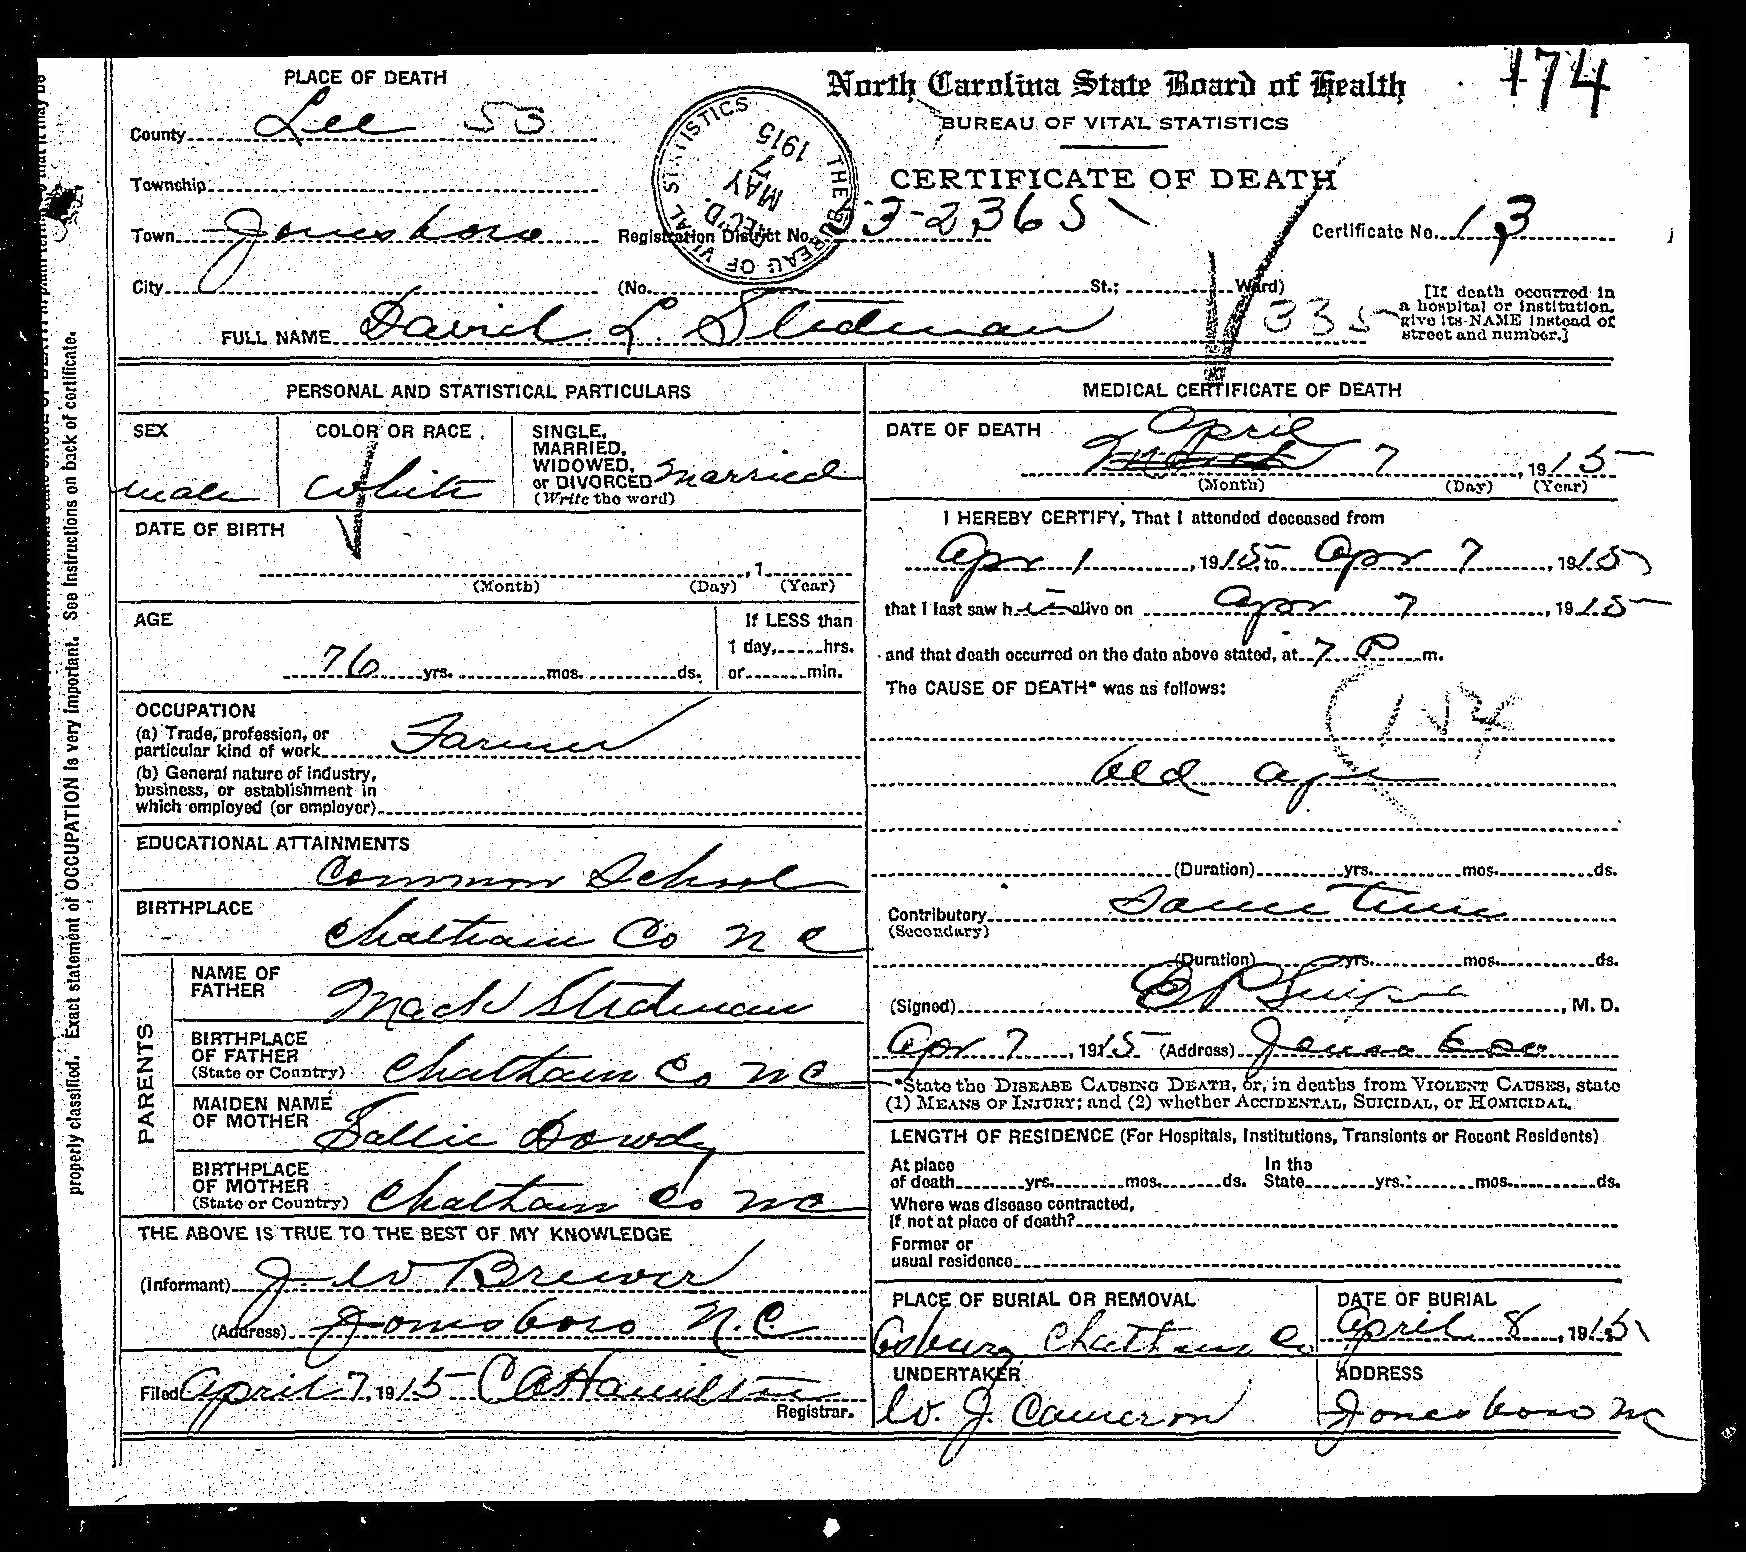 PLACE OF DEATH
North Carolina State Board of Health
174
BUREAU OF VITAL STATISTICS
CERTIFICATE OF DEATH
County Lee 53
Township
Town Jonesboro
Registration District No. 3-2365
Certificate No. 13
THE BUREAU OF VITAL STATISTICS
REC'D.
MAY
7
1915
City (No. St.; Ward)
[If death occurred in
a hospital or institution,
give its NAME instead of
street and number.]
335
FULL NAME David L. Stedman
PERSONAL AND STATISTICAL PARTICULARS
SEX
male
COLOR OR RACE
White
SINGLE,
MARRIED,
WIDOWED,
or DIVORCED Married
(Write the word)
DATE OF BIRTH
, 1
(Month) (Day) (Year)
AGE
76 yrs. mos. ds.
If LESS than
1 day, hrs.
or min.
OCCUPATION
(a) Trade, profession, or
particular kind of work Farmer
(b) General nature of industry,
business, or establishment in
which employed (or employer)
EDUCATIONAL ATTAINMENTS
Common School
BIRTHPLACE
Chatham Co N C
PARENTS
NAME OF
FATHER Mack Stedman
BIRTHPLACE
OF FATHER
(State or Country) Chatham Co N C
MAIDEN NAME
OF MOTHER Sallie Dowdy
BIRTHPLACE
OF MOTHER
(State or Country) Chatham Co N C
THE ABOVE IS TRUE TO THE BEST OF MY KNOWLEDGE
(Informant) J. W Brewer
(Address) Jonesboro N.C
Filed April 7, 1915 C A Hamilton
Registrar.
MEDICAL CERTIFICATE OF DEATH
DATE OF DEATH
April
March 7, 1915
(Month) (Day) (Year)
I HEREBY CERTIFY, That I attended deceased from
Apr 1, 1915 to Apr 7, 1915
that I last saw h im alive on Apr 7, 1915
and that death occurred on the date above stated, at 7 P m.
The CAUSE OF DEATH* was as follows:
Old age
(Duration) yrs. mos. ds.
Contributory Some Time
(Secondary)
(Duration) yrs. mos. ds.
(Signed) , M. D.
Apr 7, 1915 (Address) Jonesboro
*State the DISEASE CAUSING DEATH, or, in deaths from VIOLENT CAUSES, state
(1) MEANS OF INJURY; and (2) whether ACCIDENTAL, SUICIDAL, or HOMICIDAL.
LENGTH OF RESIDENCE (For Hospitals, Institutions, Transients or Recent Residents)
At place
of death yrs. mos. ds.
In the
State yrs. mos. ds.
Where was disease contracted,
If not at place of death?
Former or
usual residence
PLACE OF BURIAL OR REMOVAL
Asbury Chatham Co
DATE OF BURIAL
April 8, 1915
UNDERTAKER
W. J. Cameron
ADDRESS
Jonesboro NC
properly classified. Exact statement of OCCUPATION is very important. See Instructions on back of certificate.